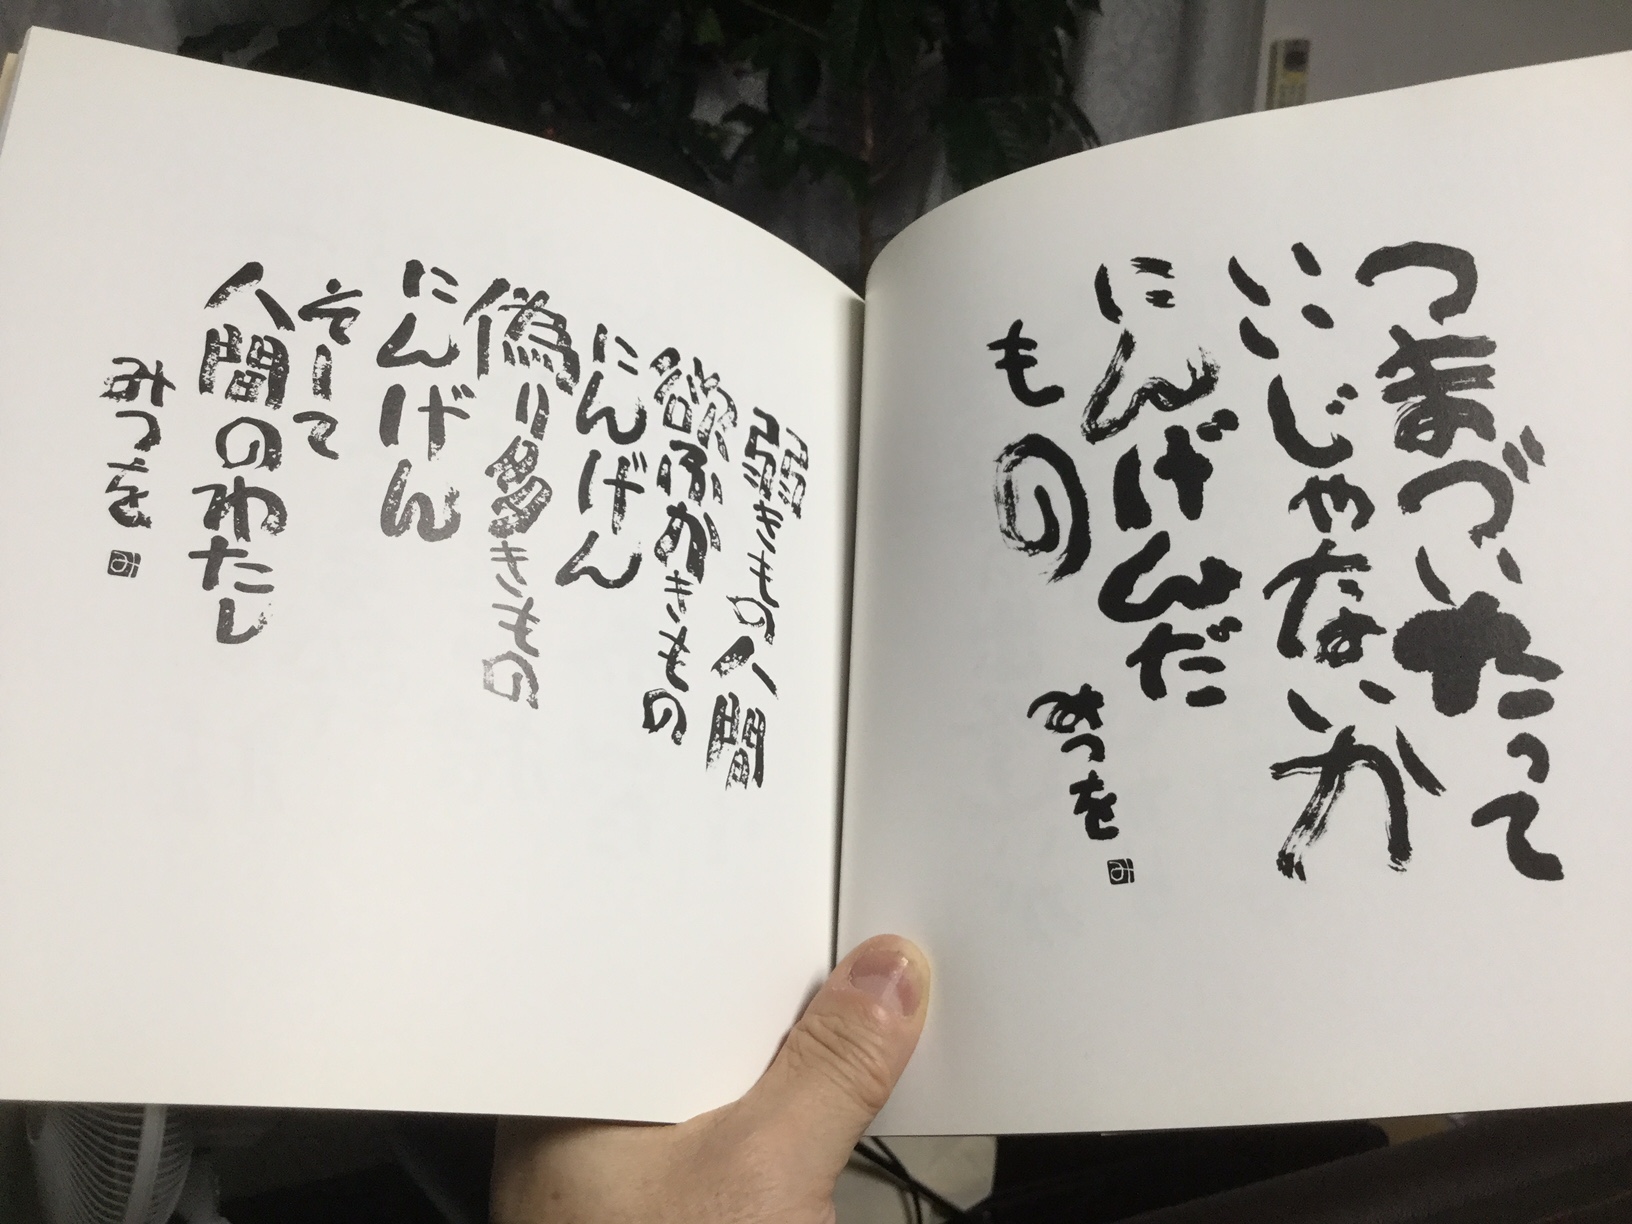 つまづいたって
いいじゃないか
にんげんだ
もの
みつを
弱きもの人間
欲ふかきもの
にんげん
偽り多きもの
にんげん
そして
人間のわたし
みつを